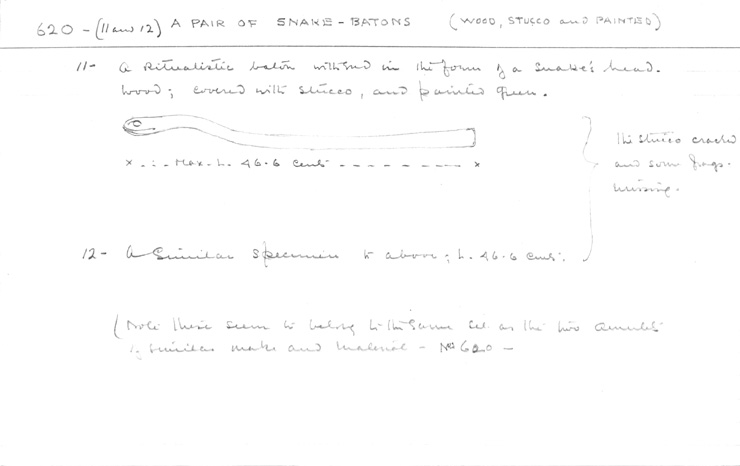 620 - (11 and 12) A PAIR OF SNAKE-BATONS (WOOD, STUCCO and PAINTED)
11- A Ritualistic baton with end in the form of a snake's head.
Wood; covered with stucco, and painted green.
The stucco cracked
and some frags.
missing.
x - : - Max. L. 46.6 cents - - - - - - - - x
12- A Similar specimen to above; L. 46.6 cents.
(Note these seem to belong to the same set as the two amulets
of similar make and material - No 620 -